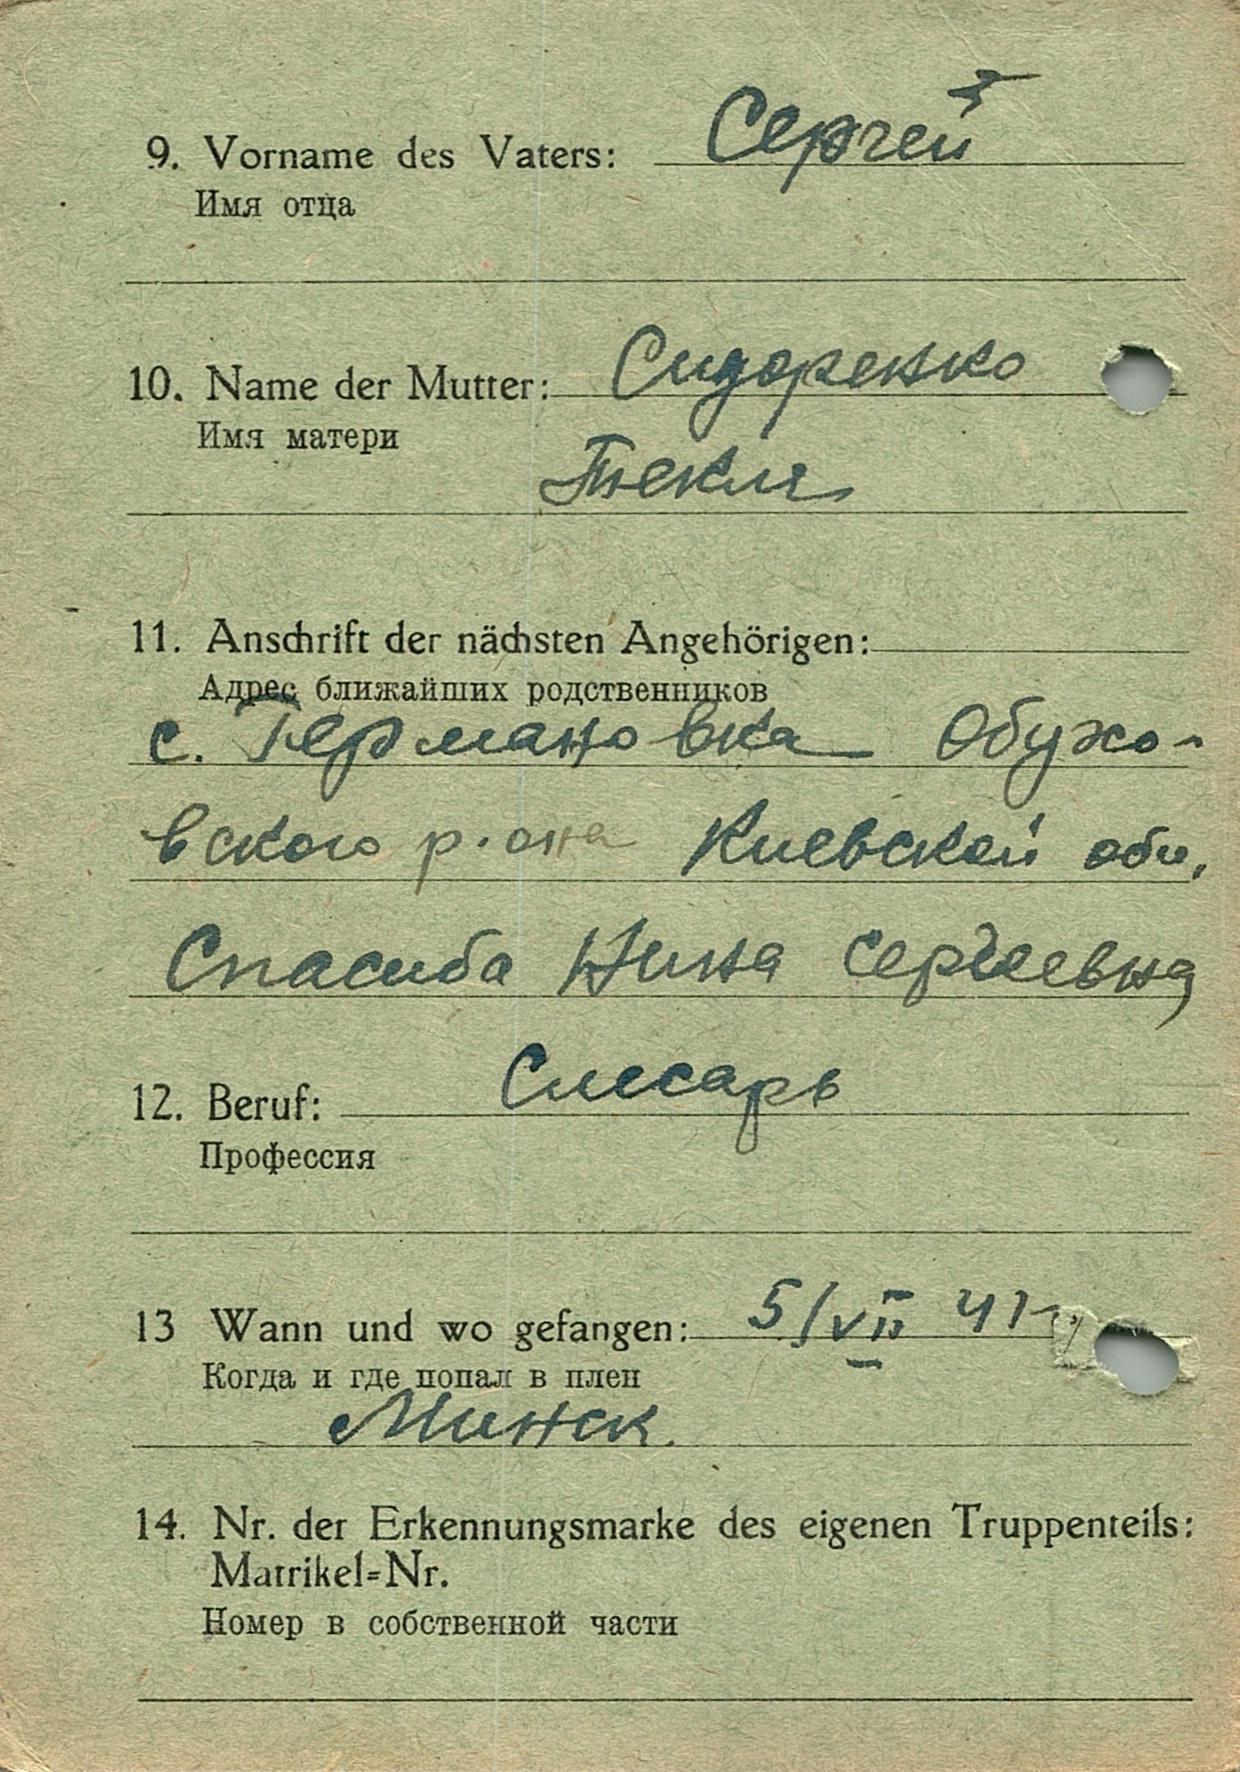 9. Vorname des Vaters: Сергей
Имя отца
10. Name der Mutter: Сидоренко
Имя матери
Текля
11. Anschrift der nächsten Angehörigen:
Адрес ближайших родственников
с. Германовка Обухо-
вского р.она Киевской обл.
Спасиба Нина Сергеевна
12. Beruf: Слесарь
Профессия
13 Wann und wo gefangen: 5/VII 41г.
Когда и где попал в плен
Минск.
14. Nr. der Erkennungsmarke des eigenen Truppenteils:
Matrikel=Nr.
Номер в собственной части